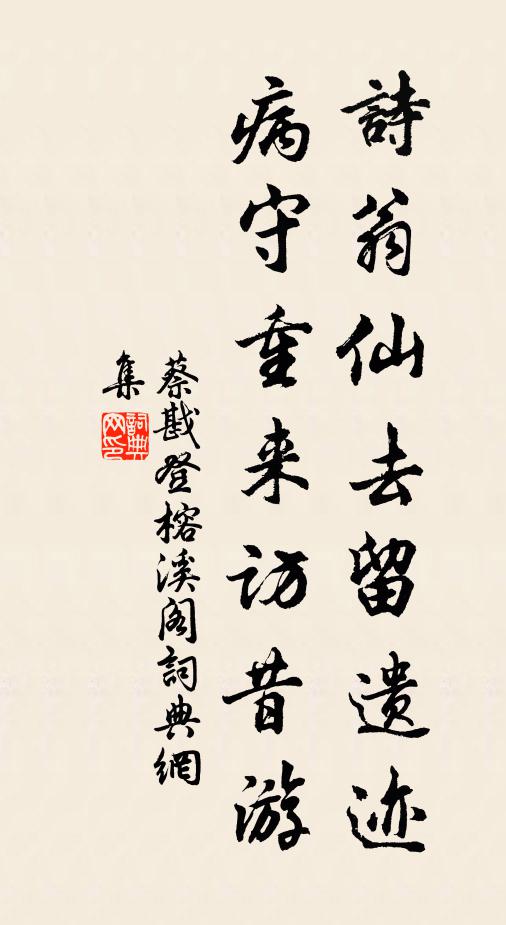 詩翁仙去留遗迹
病守重来访昔游
蔡戡登榕溪阁詞典網
集
詞典网印